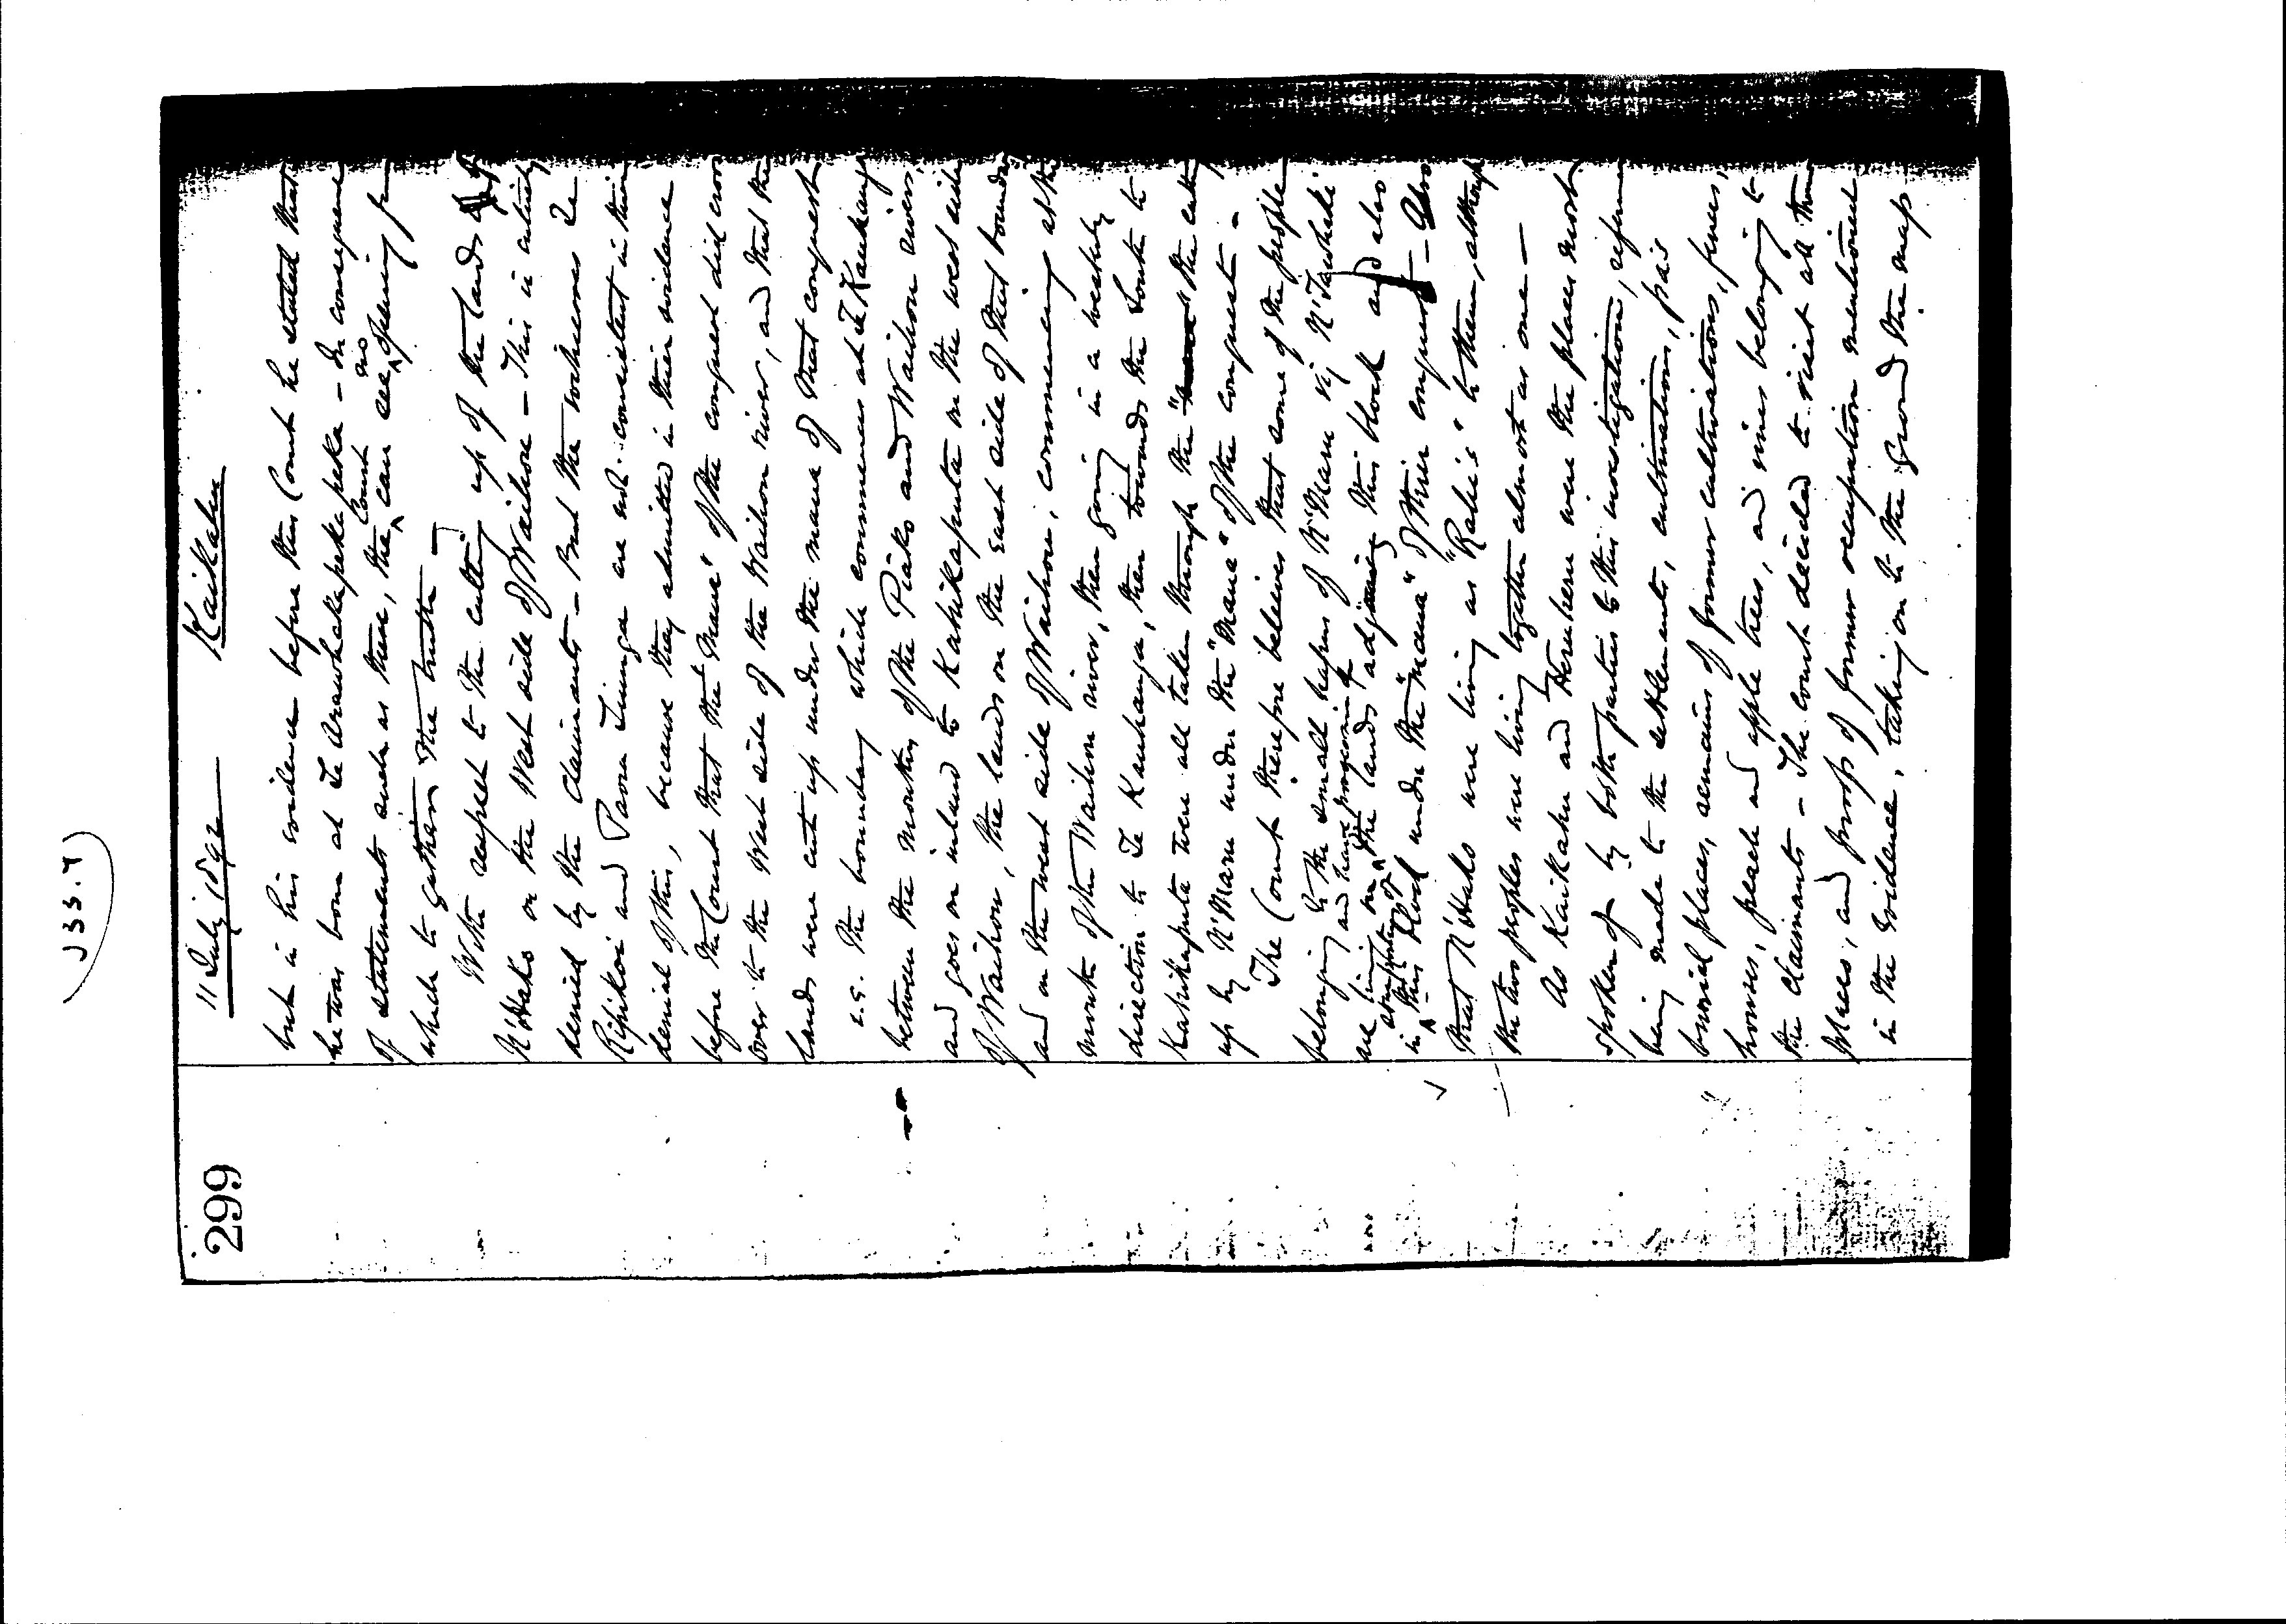 J33.4
299
11 July 1892 Kaikahu
but in his evidence before this Court he stated that
he was born at Te Arawhakapekapeka - In consequence
of statements such as these, the Court can see no opening from
which to gather the truth -
With respect to the cutting up of the lands of
N'Hako on the West side of Waihou - This is entirely
denied by the Claimants - But the witnesses Te
Ripikoi and Paora Tiunga are not consistent in their
denial of this, because they admitted in their evidence
before the Court that the "mana" of the conquest did cross
over to the West side of the Waihou river, and that the
lands were cut up under the mana of that conquest
e.g. the boundary which commences at Te Kauhanga
between the mouths of the Piako and Waihou rivers,
and goes on inland to Kahikaputa on the west side
of Waihou, the lands on the East side of that boundary
and on the west side of Waihou, commencing at the
mouth of the Waihou river, then going in a westerly
direction to Te Kauhanga, then towards the South to
Kahikaputa were all taken through the cutting
up by N'Maru under the "Mana" of the conquest -
The Court therefore believes that some of the people
belonging to the small hapus of N'Maru viz N'Tawhaki
are living on and have possession of the lands adjoining this block and also
in this block under the "mana" of their conquest - Also
that N'Hako were living as "Rahi's" to them, although
the two peoples were living together almost as one -
As Kaikahu and Herehere were the places most
spoken of by both parties to this investigation, reference
being made to the settlements, cultivations, pa's
burial places, remains of former cultivations, fences,
houses, peach and apple trees, and vines belonging to
the claimants - The Court decided to visit all those
places, and proofs of former occupation mentioned
in the evidence, taking on to the ground the map